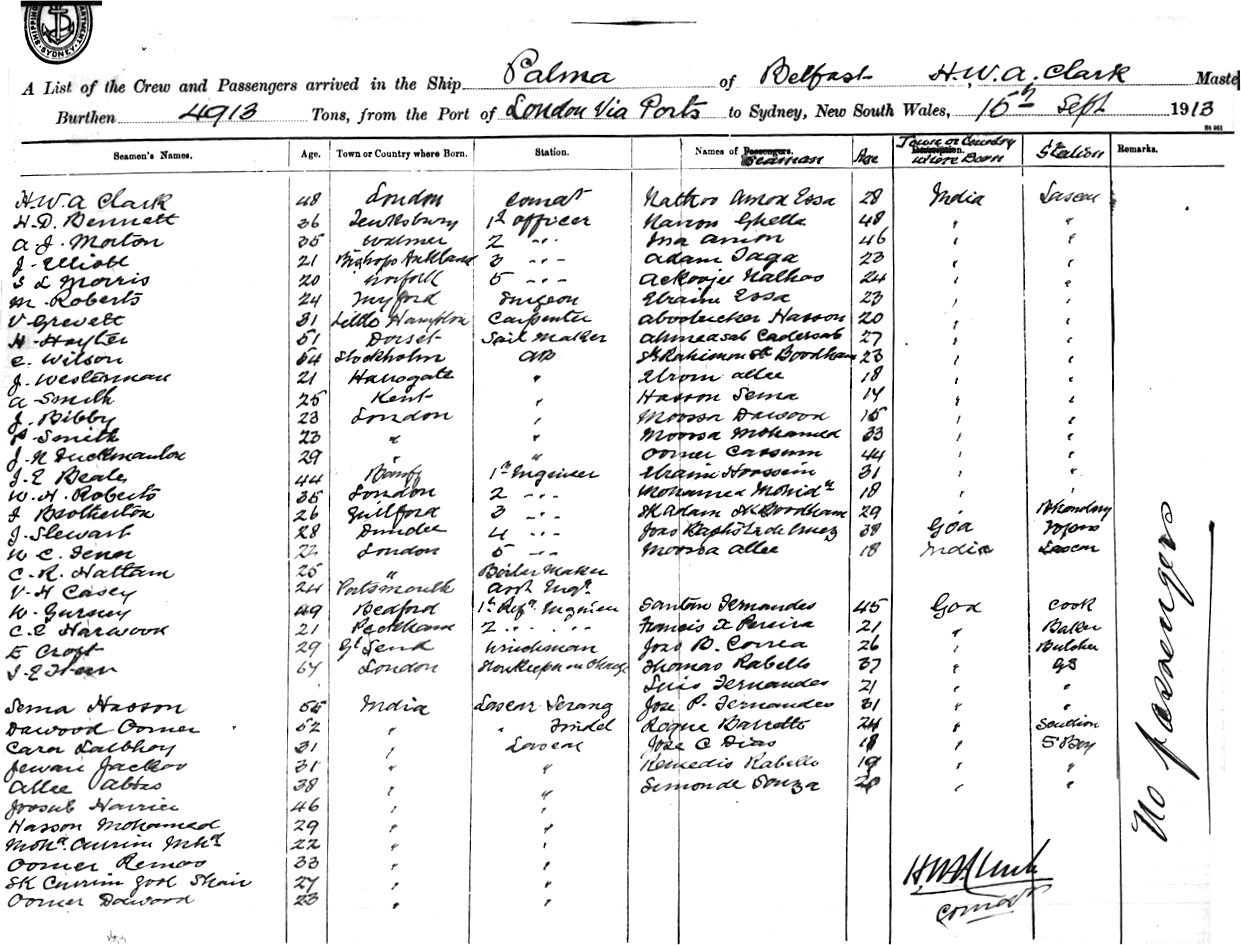 SHIPPING DEPARTMENT SYDNEY
A List of the Crew and Passengers arrived in the Ship Palma of Belfast H.W.A. Clark Master
Burthen 4913 Tons, from the Port of London Via Ports to Sydney, New South Wales, 15th Sept 1913
Seamen's Names. Age. Town or Country where Born. Station. Names of Passengers. Seaman Age Description. Town or Country where Born Station Remarks.
H.W.A Clark 48 London Comdr Nathoo Amod Essa 28 India Lascar
H.D. Bennett 36 Tewksbury 1st officer Narron Ghella 48 " "
A.J. Morton 35 Walmer 2 " " Issa Amon 46 " "
J. Elliott 21 Bishops Auckland 3 " " Adam Jaga 23 " "
S L Morris 20 Norfolk 5 " " Ackoojee Nathoo 24 " "
M. Roberts 24 Twyford Surgeon Ebraim Essa 23 " "
V Grevett 31 Little Hampton Carpenter Aboobucker Hasson 20 " "
H. Hayter 51 Dorset Sail Maker Ahmedsab Cadersab 27 " "
C. Wilson 54 Stockholm AB Sk Rahimon Sk Boodhan 23 " "
J. Westerman 21 Harrogate " Ebrom Allee 18 " "
A Smith 25 Kent " Hasson Sema 14 " "
J. Bibby 23 London " Moossa Dawood 15 " "
P. Smith 23 " " Moosa Mohamed 33 " "
J. N Duckmanton 29 " " Oomer Cassum 44 " "
J. E Beales 44 Banff 1st Engineer Ebraim Hoossein 31 " "
W. H. Roberts 35 London 2 " " Mohamed Mohidn 18 " "
J Brotherton 26 Guilford 3 " " Sk Adam Sk Boodham 29 " Bhandary
J. Stewart 28 Dundee 4 " " Joao Baptista de Cruz 38 Goa Topass
W C. Fenn 22 London 5 " " Moosa Allee 18 India Lascar
C. R. Hattam 25 " Boiler Maker
V. H Casey 24 Portsmouth Asst Engr
W. Gurney 49 Bedford 1st Refr. Engineer Santan Fernandes 45 Goa Cook
C. E Harwook 21 Peckham 2 " " " Francis X Pereira 21 " Baker
E Croft 29 Gt Send Winchman Joao B. Correa 26 " Butcher
J. E 67 London Storekeeper in Charge Thomas Rabello 37 " GS
Luis Fernandes 21 " "
Sema Hasson 55 India Lascar Serang Jose P. Fernandes 31 " "
Dawood Oomer 52 " " Tindel Roque Barretto 24 " Scullion
Caror Lalbhoy 31 " Lascar Jose C Dias 18 " S Boy
Jewan Jackoo 31 " " Remedis Rabello 19 " "
Allee Abbas 38 " " Simon de Souza 20 " "
Joosub Harrie 46 " "
Hasson Mohamed 29 " "
Mohd. Currim Mhd 22 " "
Oomer Remoo 33 " "
SK Currim Gool Shair 27 " "
Oomer Dawood 23 " "
No passengers
H.W.A. Clark
Comdr